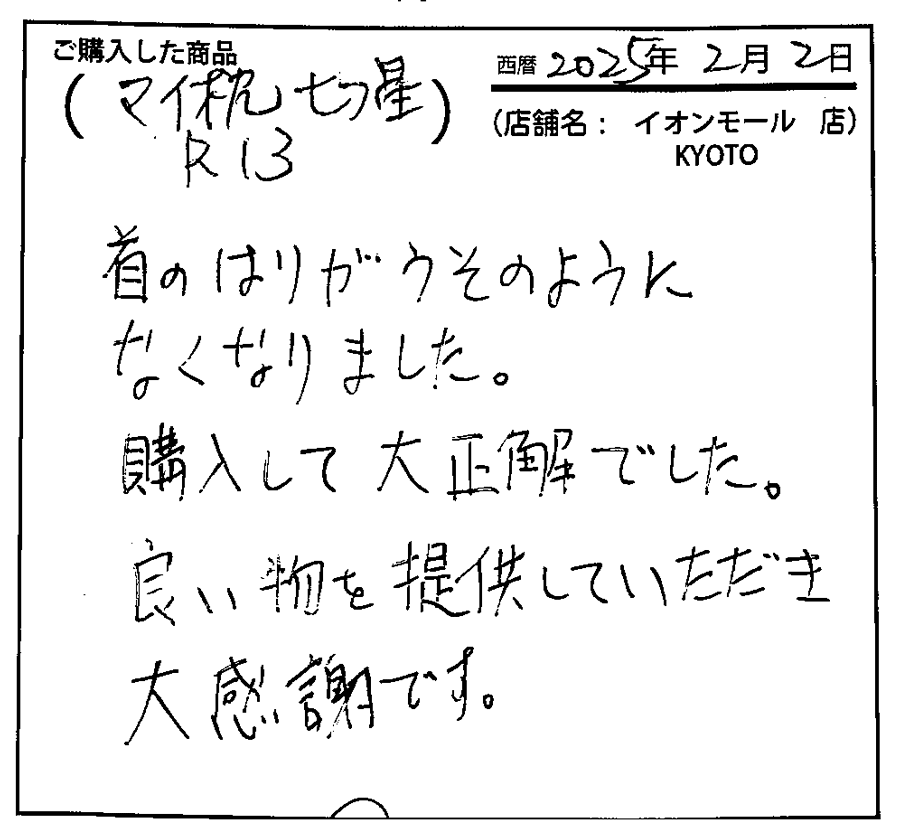 ご購入した商品
西暦 2025年 2月 2日
(マイ枕 七つ星)
R13
(店舗名: イオンモール 店)
KYOTO
首のはりがうそのように
なくなりました。
購入して大正解でした。
良い物を提供していただき
大感謝です。